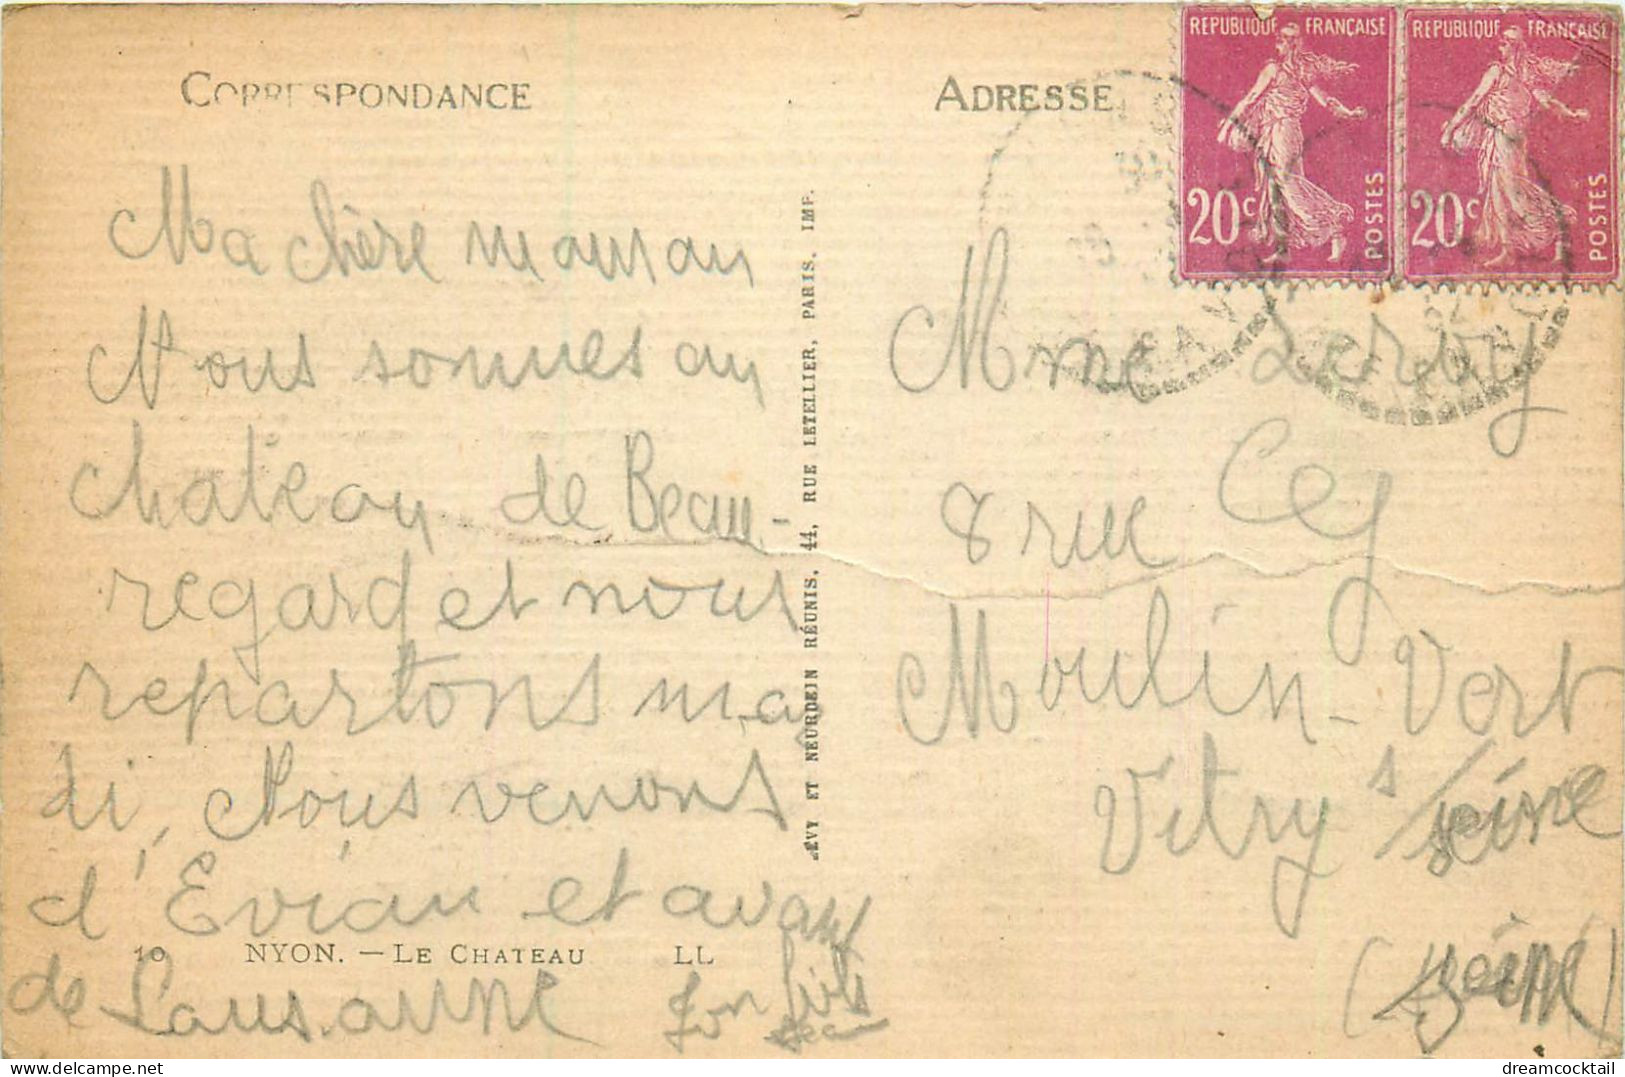 CORRESPONDANCE
ADRESSE
REPUBLIQUE FRANÇAISE
20c
POSTES
REPUBLIQUE FRANÇAISE
20c
POSTES
Ma chère maman
Nous sommes au
chateau de Beau-
regard et nous
repartons mar
di, Nous venons
d'Evian et avant
de Lausanne
Ton fils
Jean
LEVY ET NEURDEIN RÉUNIS, 44, RUE LETELLIER, PARIS. IMP.
Mme
8 rue
Moulin-Vert
Vitry s/seine
(Seine)
10 NYON. — LE CHATEAU LL
© dreamcocktail